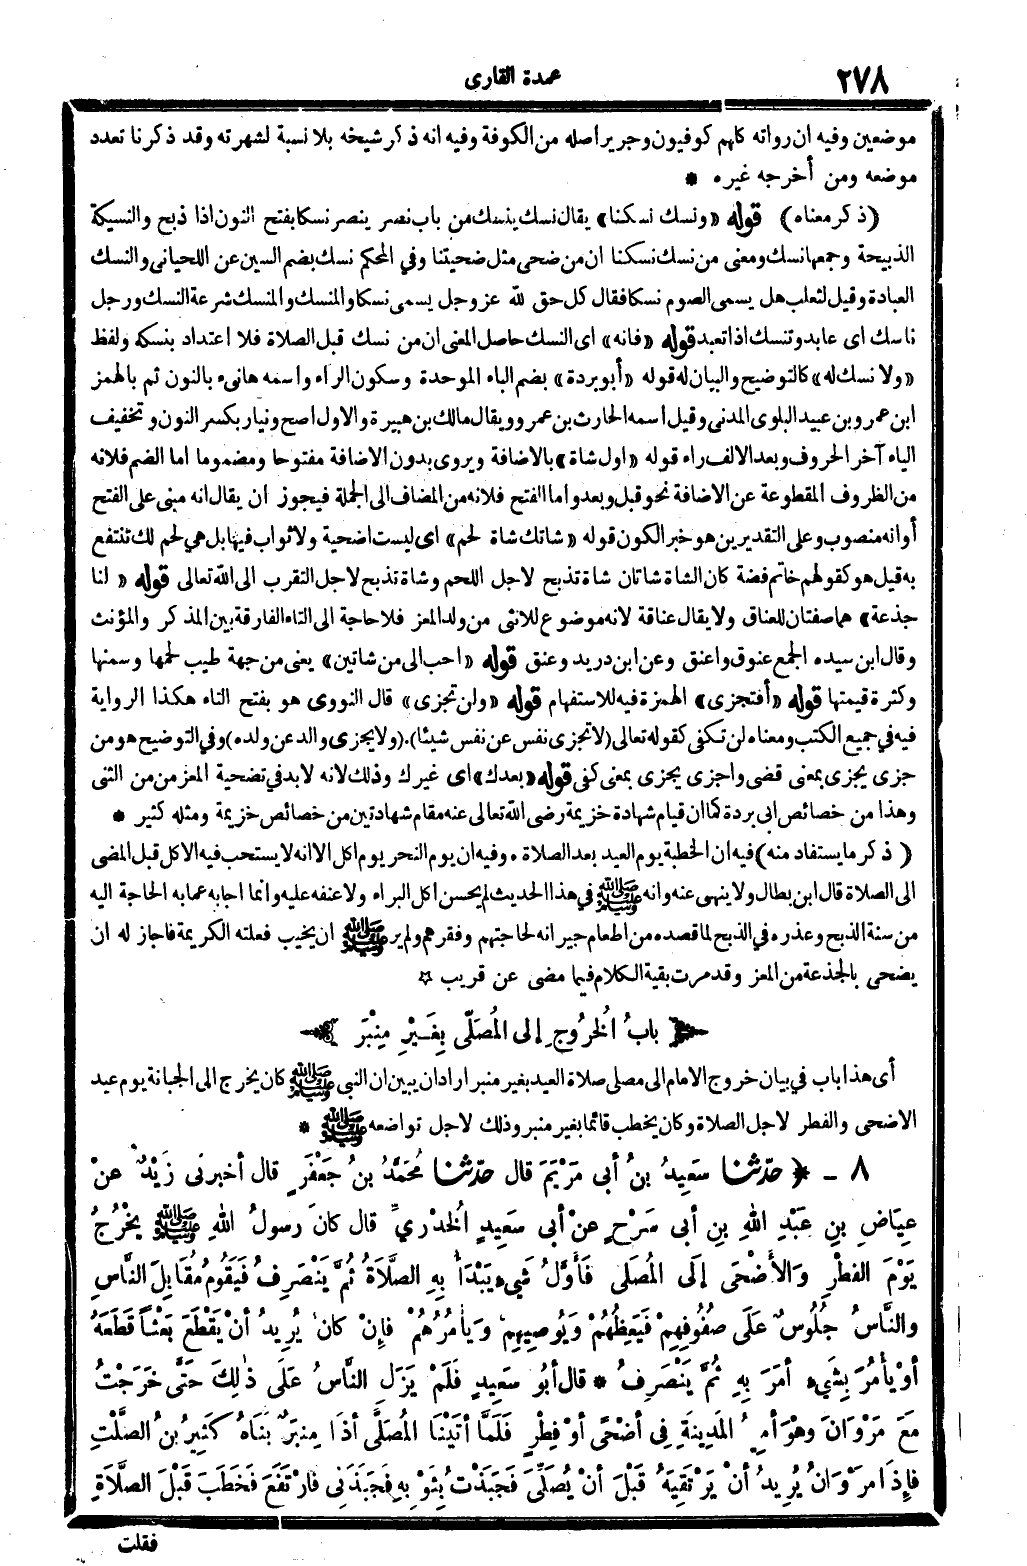 ٢٧٨
عمدة القارى
موضعين وفيه ان رواته كلهم كوفيون وجرير اصله من الكوفة وفيه انه ذكر شيخه بلا نسبة لشهرته وقد ذكرنا تعدد
موضعه ومن أخرجه غيره *
(ذكر معناه) قوله «ونسك نسكنا» يقال نسك ينسك من باب نصر ينصر نسكا بفتح النون اذا ذبح والنسيكة
الذبيحة وجمعها نسك ومعنى من نسك نسكنا ان من ضحى مثل ضحيتنا وفي المحكم نسك بضم السين عن اللحيانى والنسك
العبادة وقيل لثعلب هل يسمى الصوم نسكا فقال كل حق لله عز وجل يسمى نسكا والمنسك والمنسك شرعة النسك ورجل
ناسك اى عابد وتنسك اذا تعبد قوله «فانه» اى النسك حاصل المعنى ان من نسك قبل الصلاة فلا اعتداد بنسكه ولفظ
«ولا نسك له» كالتوضيح والبيان له قوله «أبو بردة» بضم الباء الموحدة وسكون الراء واسمه هانىء بالنون ثم بالهمز
ابن عمرو بن عبيد البلوى المدنى وقيل اسمه الحارث بن عمرو ويقال مالك بن هبيرة والاول اصح ونيار بكسر النون وتخفيف
الياء آخر الحروف وبعد الالف راء قوله «اول شاة» بالاضافة ويروى بدون الاضافة مفتوحا ومضموما اما الضم فلانه
من الظروف المقطوعة عن الاضافة نحو قبل وبعد واما الفتح فلانه من المضاف الى الجملة فيجوز ان يقال انه مبنى على الفتح
أو انه منصوب وعلى التقديرين هو خبر الكون قوله «شاتك شاة لحم» اى ليست اضحية ولا ثواب فيها بل هى لحم لك تنتفع
به قيل هو كقولهم خاتم فضة كان الشاة شاتان شاة تذبح لاجل اللحم وشاة تذبح لاجل التقرب الى الله تعالى قوله «لنا
جذعة» هما صفتان للعناق ولا يقال عناقة لانه موضوع للانثى من ولد المعز فلا حاجة الى التاء الفارقة بين المذكر والمؤنث
وقال ابن سيده الجمع عنوق واعنق وعن ابن دريد وعنق قوله «احب الى من شاتين» يعنى من جهة طيب لحمها وسمنها
وكثرة قيمتها قوله «أفتجزى» الهمزة فيه للاستفهام قوله «ولن تجزى» قال النووى هو بفتح التاء هكذا الرواية
فيه في جميع الكتب ومعناه لن تكفى كقوله تعالى (لا تجزى نفس عن نفس شيئا)،(ولا يجزى والد عن ولده) وفي التوضيح هو من
جزى يجزى بمعنى قضى واجزى يجزى بمعنى كفى قوله «بعدك» اى غيرك وذلك لانه لابد في تضحية المعز من من الثنى
وهذا من خصائص ابى بردة كما ان قيام شهادة خزيمة رضى الله تعالى عنه مقام شهادتين من خصائص خزيمة ومثله كثير *
(ذكر ما يستفاد منه) فيه ان الخطبة يوم العيد بعد الصلاة، وفيه ان يوم النحر يوم اكل الا انه لا يستحب فيه الاكل قبل المضى
الى الصلاة قال ابن بطال ولا ينهى عنه وانه ﷺ في هذا الحديث لم يحسن اكل البراء ولا عنفه عليه وانما اجابه عما به الحاجة اليه
من سنة الذبح وعذره في الذبح لما قصده من اطعام جيرانه لحاجتهم وفقرهم ولم ير ﷺ ان يخيب فعلته الكريمة فاجاز له ان
يضحى بالجذعة من المعز وقد مرت بقية الكلام فيما مضى عن قريب ☆
﴿ بابُ الخُرُوجِ إلى المُصَلّى بِغَيْرِ مِنْبَرَ ﴾
أى هذا باب في بيان خروج الامام الى مصلى صلاة العيد بغير منبر اراد ان يبين ان النبى ﷺ كان يخرج الى الجبانة يوم عيد
الاضحى والفطر لاجل الصلاة وكان يخطب قائما بغير منبر وذلك لاجل تواضعه ﷺ *
٨ - ﴿ حدّثنا سعيدُ بنُ أبى مَرْيَمَ قال حدّثنا مُحَمَّدُ بنُ جَعْفَرٍ قال أخبرنى زَيْدٌ عنْ
عِيَاضِ بنِ عَبْدِ اللهِ بنِ أبى سَرْحٍ عنْ أبى سَعِيدٍ الخدْرِيِّ قال كانَ رسولُ اللهِ ﷺ يخْرُجُ
يَوْمَ الفطْرِ وَالأضْحَى إلَى المُصَلى فَأَوَّلُ شَيءٍ يَبْدَأُ بِهِ الصَّلاَةُ ثُمَّ يَنْصَرِفُ فَيَقُومُ مُقَابِلَ النَّاسِ
والنَّاسُ جُلُوسٌ عَلَى صُفُوفِهِمْ فَيَعِظُهُمْ وَيُوصِيهِمْ وَيَأْمُرُهُمْ فإنْ كانَ يُرِيدُ أنْ يَقْطَعَ بَعْثًا قَطَعَهُ
أوْ يأْمُرَ بِشَيءٍ أمَرَ بِهِ ثُمَّ يَنْصَرِفُ * قال أبُو سَعِيدٍ فَلَمْ يَزَلِ النَّاسُ عَلَى ذٰلِكَ حَتَّى خَرَجْتُ
مَعَ مَرْوَانَ وهْوَ أمِيرُ المَدِينَةِ فِى أضْحًى أوْ فِطْرٍ فَلَمَّا أتَيْنَا المُصَلَّى أذَا مِنبَرٌ بَنَاهُ كَثِيرُ بنُ الصَّلْتِ
فإِذَا مَرْوَانُ يُرِيدُ أنْ يَرْتَقِيَهُ قَبْلَ أنْ يُصَلِّىَ فَجَبَذْتُ بِثَوْبِهِ فَجَبَذَنِى فارْتَفَعَ فَخَطَبَ قَبْلَ الصَّلاَةِ
فقلت